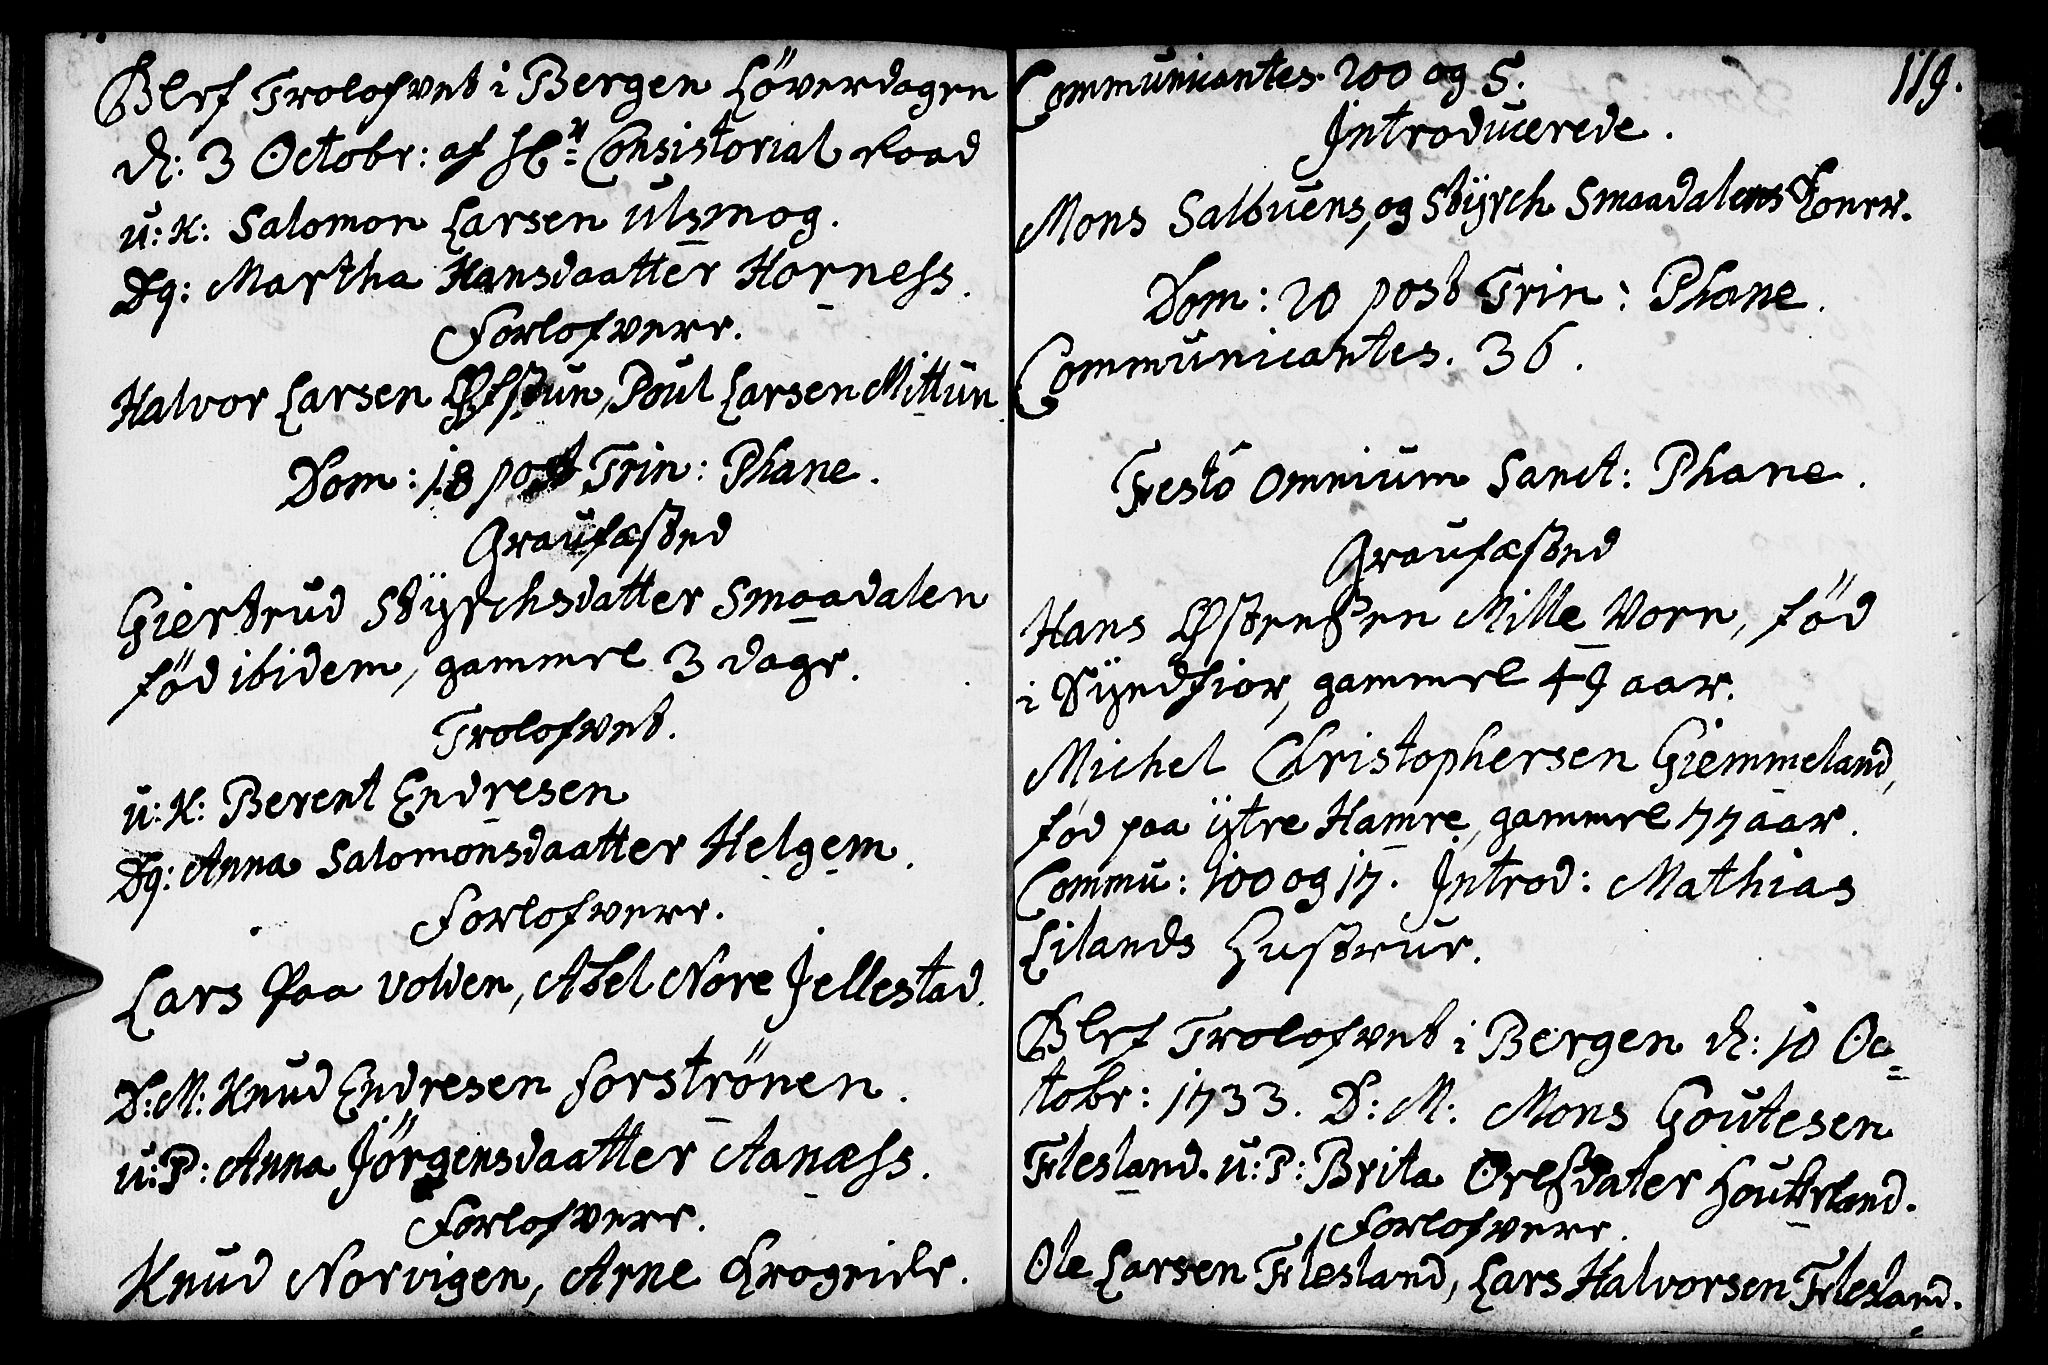 Blef Trolofvet i Bergen Löverdagen
d: 3 Octobr: af Hr Consistorial Raad
u: K: Salomon Larsen Ulsmog.
Dg: Martha Hansdaatter Horness.
Forlofvere.
Halvor Larsen Øfstun, Poul Larsen Mittun
Dom: 18 post Trin: Phane.
Graufæsted
Giertrud Styrchsdatter Smaadalen
föd ibidem, gammel 3 dage.
Trolofvet.
u: K: Berent Endresen
Dg: Anna Salomonsdaatter Helgem.
Forlofvere.
Lars Paa Volden, Abel Nore Jellestad.
D: M: Knud Endresen Forströnen.
u: P: Anna Jörgensdaatter Aanæss.
Forlofvere.
Knud Norvigen, Arne Krogeide.
119.
Communicantes. 200 og 5.
Introducerede.
Mons Salbuens, og Styrch Smaadalens Koner.
Dom: 20 post Trin: Phane.
Communicantes. 36.
Festo Omnium Sanct: Phane.
Graufæsted
Hans Østensen Mille Vorn, föd
i Syndfior, gammel 49 aar.
Michel Christophersen Giemmeland,
föd paa ytre Hamre, gammel 77 aar.
Commu: 100 og 17. Introd: Mathias
Lilands Hustrue.
Blef Trolofvet i Bergen d: 10 Oc=
tobr: 1733. D: M: Mons Goutesen
Flesland. u: P: Brita Olesdater Houkeland.
Forlofvere.
Ole Larsen Flesland, Lars Halvorsen Flesland.